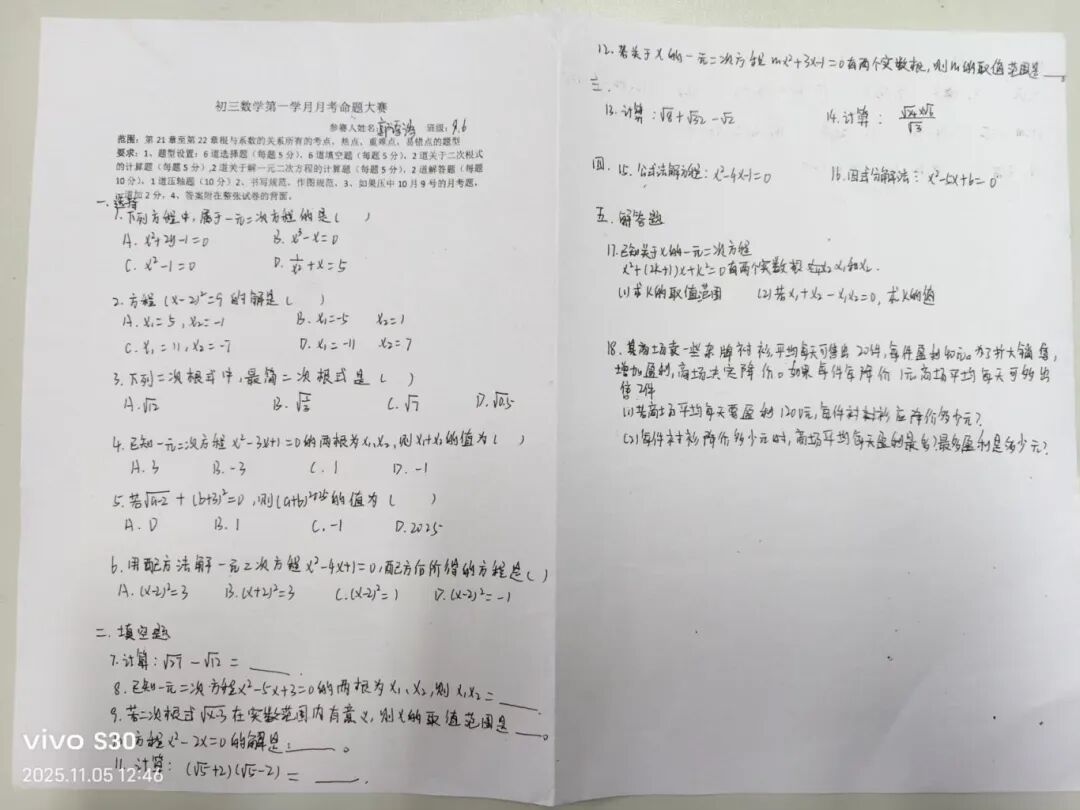 初三数学第一学月月考命题大赛
参赛人姓名: 班级:9.6
范围：第21章至第22章根与系数的关系所有的考点、热点、重难点、易错点的题型
要求：1、题型设置：6道选择题（每题5分）、6道填空题（每题5分）、2道关于二次根式
的计算题（每题5分）,2道关于解一元二次方程的计算题（每题5分）,2道解答题（每题
10分）、1道压轴题（10分）2、书写规范、作图规范、3、如果压中10月9号的月考题，
加2分、4、答案附在整张试卷的背面。
一.选择
1.下列方程中,属于一元二次方程的是( )
A. x²+2y-1=0 B. x³-x=0
C. x²-1=0 D. 1/x²+x=5
2.方程(x-2)²=9的解是( )
A. x₁=5, x₂=-1 B. x₁=-5 x₂=1
C. x₁=11, x₂=-7 D. x₁=-11 x₂=7
3.下列二次根式中,最简二次根式是( )
A.√12 B. C.√7 D.√0.5
4.已知一元二次方程x²-3x+1=0的两根为x₁,x₂,则x₁+x₂的值为( )
A.3 B.-3 C.1 D.-1
5.若√a-2+(b+3)²=0,则(a+b)²⁰²⁵的值为( )
A.0 B.1 C.-1 D.2025
6.用配方法解一元二次方程x²-4x+1=0,配方后所得的方程是( )
A.(x-2)²=3 B.(x+2)²=3 C.(x-2)²=1 D.(x-2)²=-1
二.填空题
7.计算:√27-√12=____
8.已知一元二次方程x²-5x+3=0的两根为x₁、x₂,则x₁x₂=____.
9.若二次根式√x-3在实数范围内有意义,则x的取值范围是____。
方程x²-2x=0的解是:____。
11.计算:(√5+2)(√5-2)=____.
vivo S30
2025.11.05 12:46
12.若关于x的一元二次方程mx²+3x-1=0有两个实数根,则m的取值范围是____
三.
13.计算:√8+√32-√2 14.计算:
四.15.公式法解方程:x²-4x-1=0 16.因式分解法:x²-5x+6=0
五.解答题
17.已知关于x的一元二次方程
x²+(2k+1)x+k²=0有两个实数根x₁和x₂.
(1)求k的取值范围 (2)若x₁+x₂-x₁x₂=0,求k的值
18.某商场卖一些某牌衬衫,平均每天可售出20件,每件盈利40元。为了扩大销售,
增加盈利,商场决定降价。如果每件每降价1元,商场平均每天可多出
售2件
(1)若商场平均每天要盈利1200元,每件衬衫应降价多少元?
(2)每件衬衫降价多少元时,商场平均每天盈利最多?最多盈利是多少元?